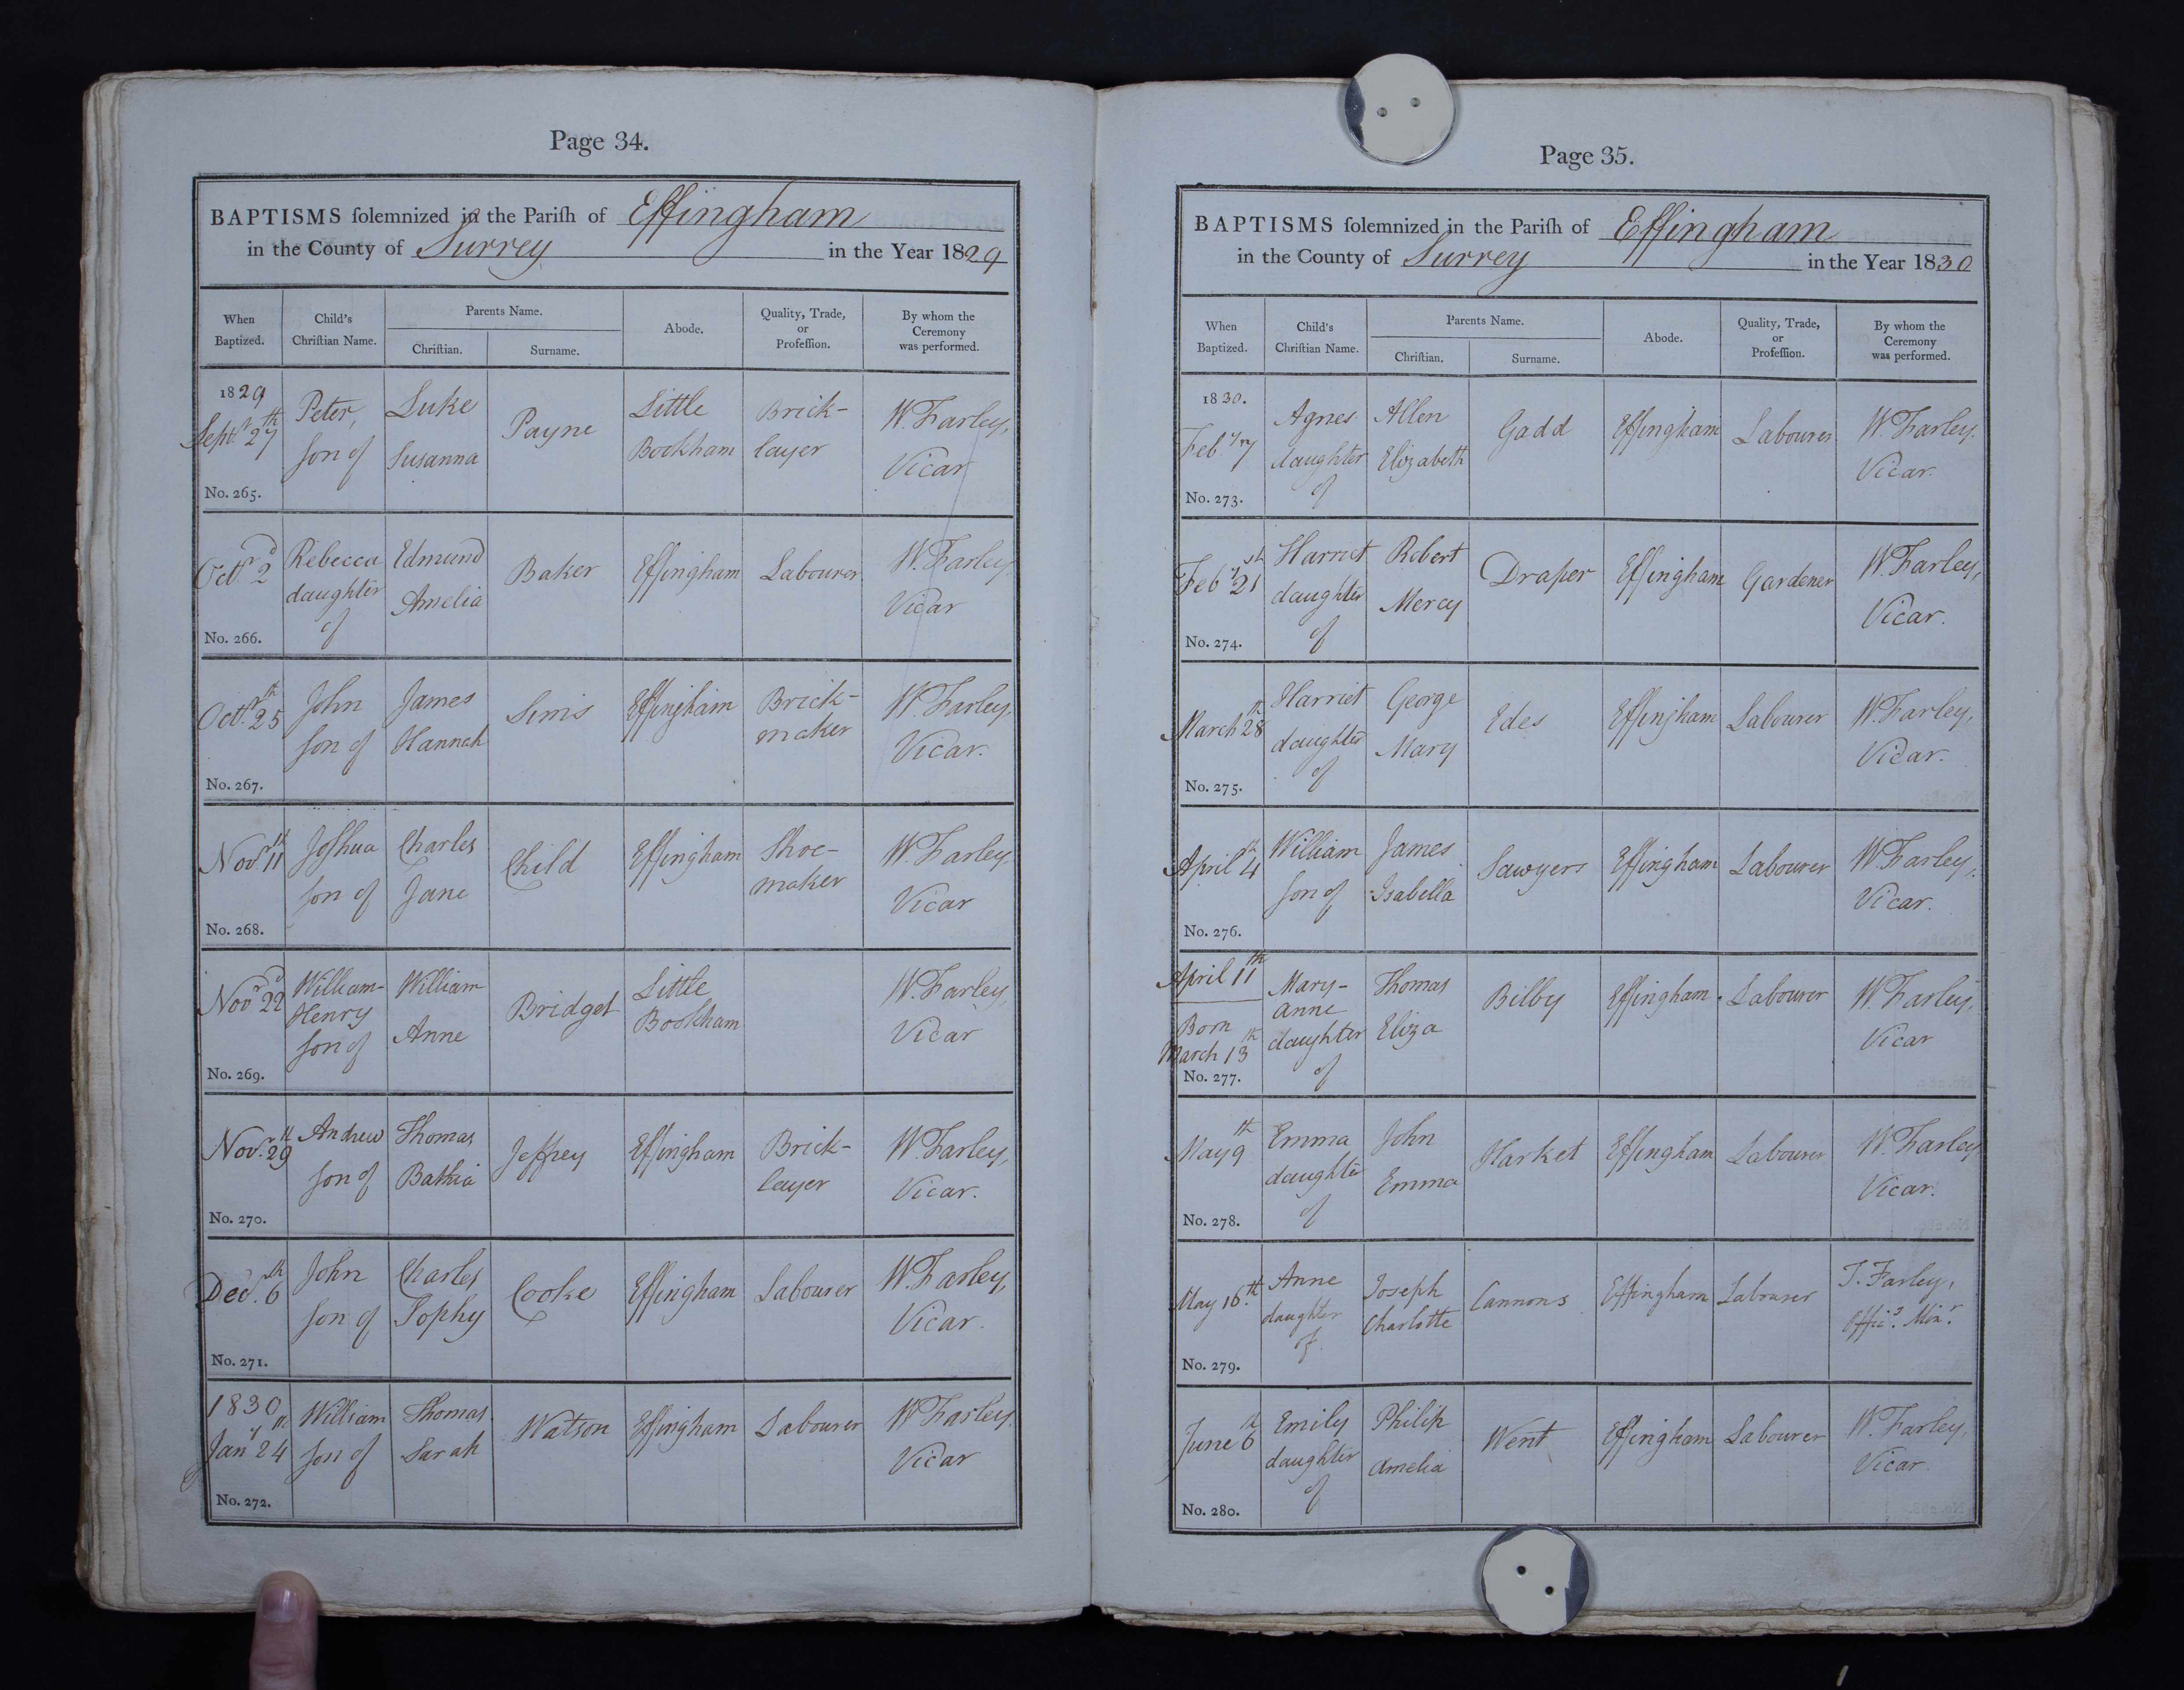 Page 34.
BAPTISMS solemnized in the Parish of Effingham
in the County of Surrey in the Year 1829
When Baptized. Child's Christian Name. Parents Name. Christian. Surname. Abode. Quality, Trade, or Profession. By whom the Ceremony was performed.
1829 Septr 27th Peter, son of Luke Susanna Payne Little Bookham Brick-layer W. Farley, Vicar
No. 265.
Octr 2d Rebecca daughter of Edmund Amelia Baker Effingham Labourer W. Farley, Vicar
No. 266.
Octr 25th John son of James Hannah Sims Effingham Brick-maker W. Farley, Vicar.
No. 267.
Novr 11th Joshua son of Charles Jane Child Effingham Shoe-maker W. Farley, Vicar
No. 268.
Novr 22d William-Henry son of William Anne Bridget Little Bookham W. Farley, Vicar
No. 269.
Novr 29th Andrew son of Thomas Bathia Jeffrey Effingham Brick-layer W. Farley, Vicar.
No. 270.
Decr. 6th John son of Charles Sophy Cooke Effingham Labourer W. Farley, Vicar.
No. 271.
1830 Jany 24th William son of Thomas Sarah Watson Effingham Labourer W Farley, Vicar
No. 272.
Page 35.
BAPTISMS solemnized in the Parish of Effingham
in the County of Surrey in the Year 1830
When Baptized. Child's Christian Name. Parents Name. Christian. Surname. Abode. Quality, Trade, or Profession. By whom the Ceremony was performed.
1830. Feby 7th Agnes daughter of Allen Elizabeth Gadd Effingham Labourer W. Farley. Vicar.
No. 273.
Feby 21st Harriet daughter of Robert Mercy Draper Effingham Gardener W. Farley, Vicar.
No. 274.
March 28th Harriet daughter of George Mary Edes Effingham Labourer W. Farley, Vicar.
No. 275.
April 4th William son of James Isabella Sawyers Effingham Labourer W. Farley, Vicar.
No. 276.
April 11th Born March 13th Mary-anne daughter of Thomas Eliza Bilby Effingham. Labourer W. Farley, Vicar
No. 277.
May 9th Emma daughter of John Emma Harket Effingham Labourer W. Farley Vicar.
No. 278.
May 16th Anne daughter of. Joseph Charlotte Cannons Effingham Labourer T. Farley, Offic.g Minr.
No. 279.
June 6th Emily daughter of Philip Amelia Went Effingham Labourer W. Farley, Vicar.
No. 280.